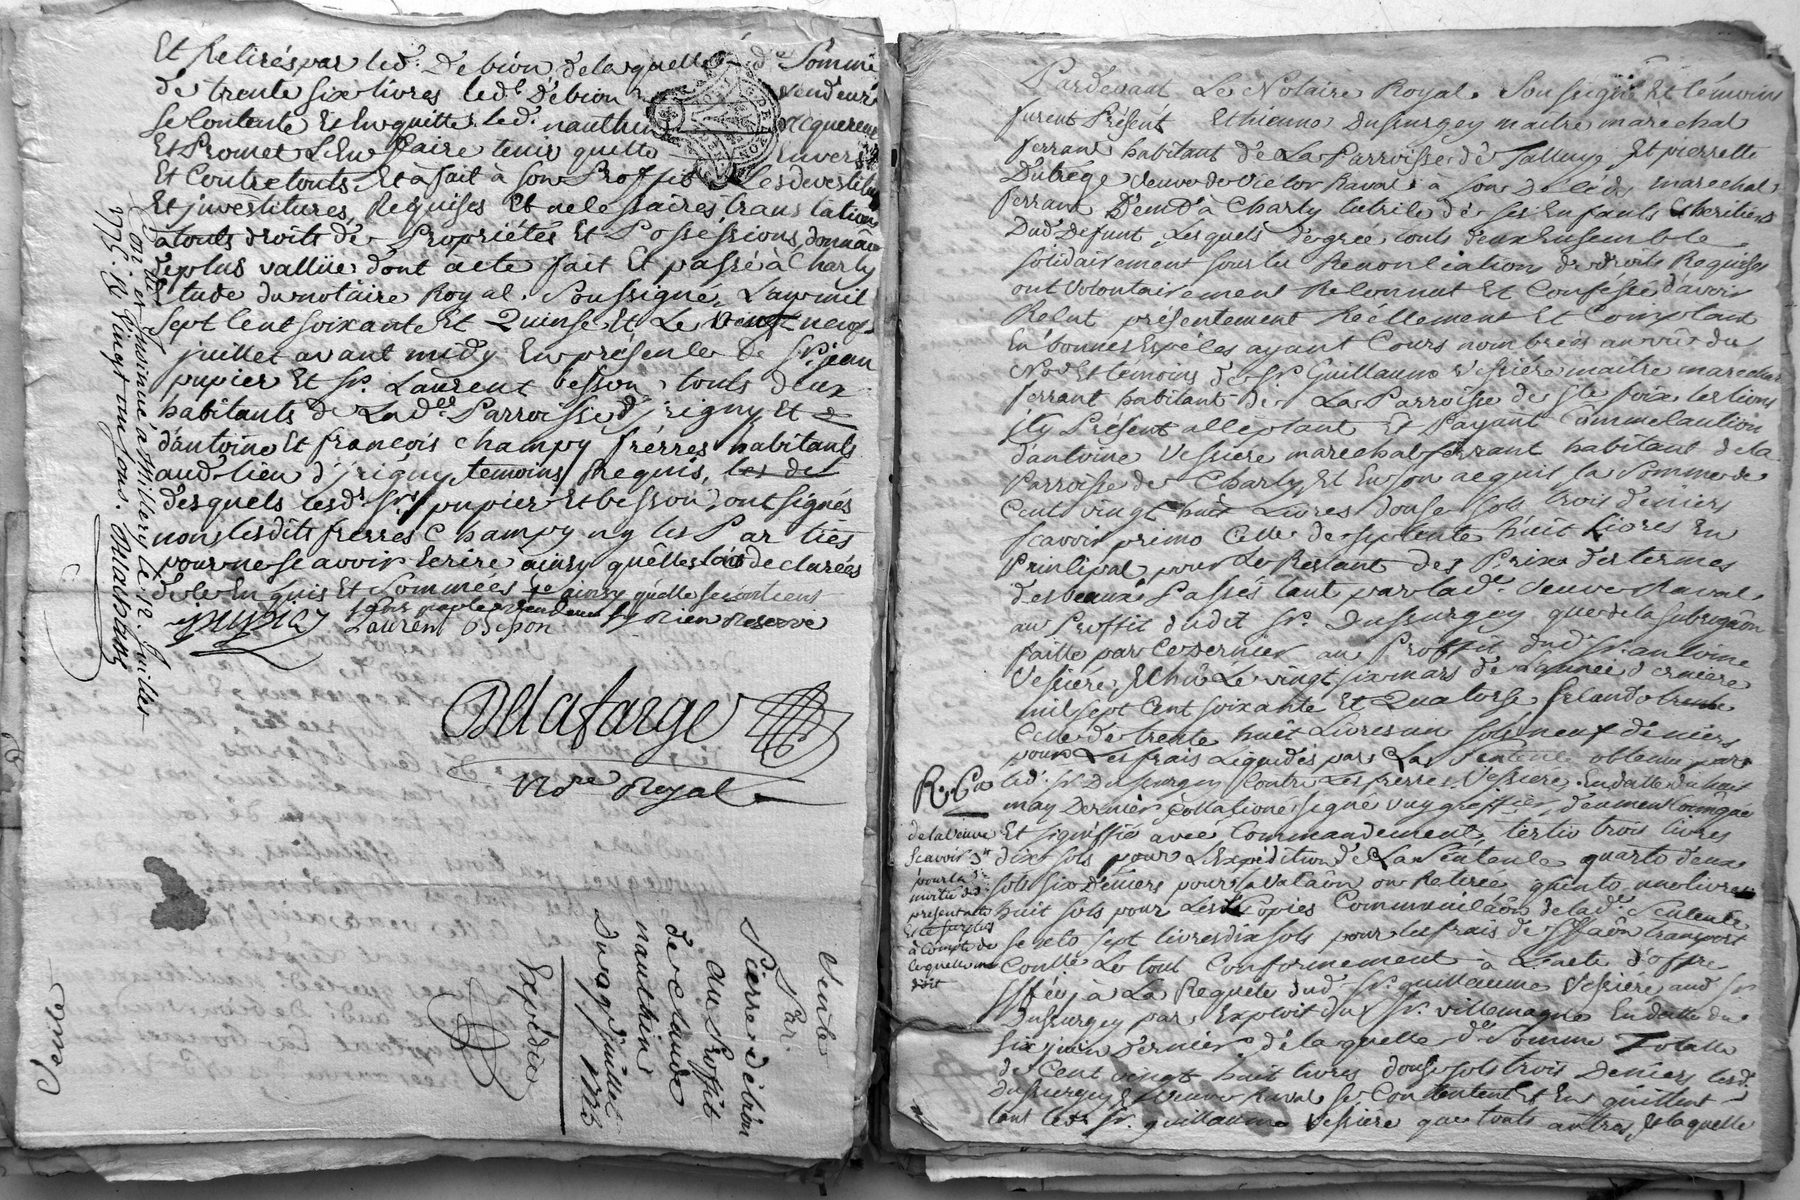 Et Retirés par led. Debion, de laquelle de Somme
de trente six livres led. Debion vendeur
se Contente Et En quitte led. nauthin acquereur
Et Promet L'En faire tenir quitte Envers
Et Contre touts, Et à fait à son Proffit Les devestitures
Et jnvestitures, Requises Et necessaires translation
à touts droits de Propriétés Et Possessions, donnant
de plus vallüe dont acte fait Et passé à Charly
Etude du notaire Royal Soussigné, L'an mil
sept cent soixante Et Quinse Et Le neuf
juillet avant midy En présence de Sr. jean
pupier Et Sr. Laurent besson, touts deux
habitants de Lad. Parroisse d'jrigny Et
d'antoine Et françois Champy frérres habitants
aud. lieu d'jrigny temoins Requis,
desquels lesd. Srs. pupier Et besson ont signés
non lesdits freres Champy ny les Parties
pour ne scavoir Ecrire ainsy quelles ont declarées
de ce Enquis Et Sommées ainsy quelle se contient
sans par le vendeur sy Rien Reserve
Laurent Besson
Delafarge
Nore Royal
Con. et Insinué à Millery le 12. Juillet
1775. Rs vingt un sous.
Vente
Par
Pierre debion
Au Proffit
de claude
nauthin
Du 9 juillet
1775
Expédiée
5eme
Pardevant Le Notaire Royal Soussigné Et témoins
furent Présent Ethienne Dussurgey maitre marechal
ferrant habitant de La Parroisse de Talluy, Et pierrette
Dutrége veuve de Victor Raval à son Décéds marechal
ferrant Demt. à Charly tutrice de ses Enfants Et heritiers
Dud. Defunt, Lesquels de gré touts deux Ensemble
solidairement sous les Renonciations de droits Requises
ont volontairement Reconnut Et Confessé d'avoir
Recut présentement Reellement Et Comptant
En bonnes Espéces ayant Cours nombrées au vû du
Nore Et temoins de Sr. Guillaume Vessiere maitre marechal
ferrant habitant de La Parroisse de Ste foix les lions
jcy Présent acceptant Et Payant Comme caution
d'antoine Vessiere marechal ferrant habitant de la
Parroisse de Charly, Et En son acquis la Somme de
Cent vingt huit Livres douse sols trois deniers
Scavoir primo Celle de septente huit Livres En
Principal pour Le Restant des Prix des termes
des beaux Passés tant par lad. veuve Raval
au Proffit dudit Sr. Dussurgey que de la subrogaôn
faitte par ce dernier au Proffit dud. Sr. antoine
Vessiere, Echû Le vingt six mars de L'année derniere
mil sept Cent soixante Et Quatorse secundo
Celle de trente huit Livres un sols neuf deniers
pour Les frais Liquidés par La Sentence obtenu par
led. Sr. Dussurgey Contre Les freres Vessiere Endatte du huit
may Dernier Collationé signé vuy greffier, deument
Et signiffié avec Commandement, tertio trois livres
dix sols pour L'Expédition de La Sentence quarto deux
sols six Déniers pour la Retirée quinto une livre
huit sols pour Les Copies de lad. Sentence
sexto sept livres dix sols pour les frais de
le tout Conformement à L'acte d'offre
à La Requete dud. Sr. guillaume Vessiere aud. Sr.
Dussurgey par Exploit du Sr. villemagne En datte du
six juin Dernier de la quelle de Somme Totalle
de Cent vingt huit livres douse sols trois Deniers lesd.
Dussurgey Et veuve Raval se Contentent Et En quittent
tant led. Sr. guillaume Vessiere que touts autres, de laquelle
de la veuve
Scavoir
pour la
moitié des
présent acte
Et le surplus
à Compte de